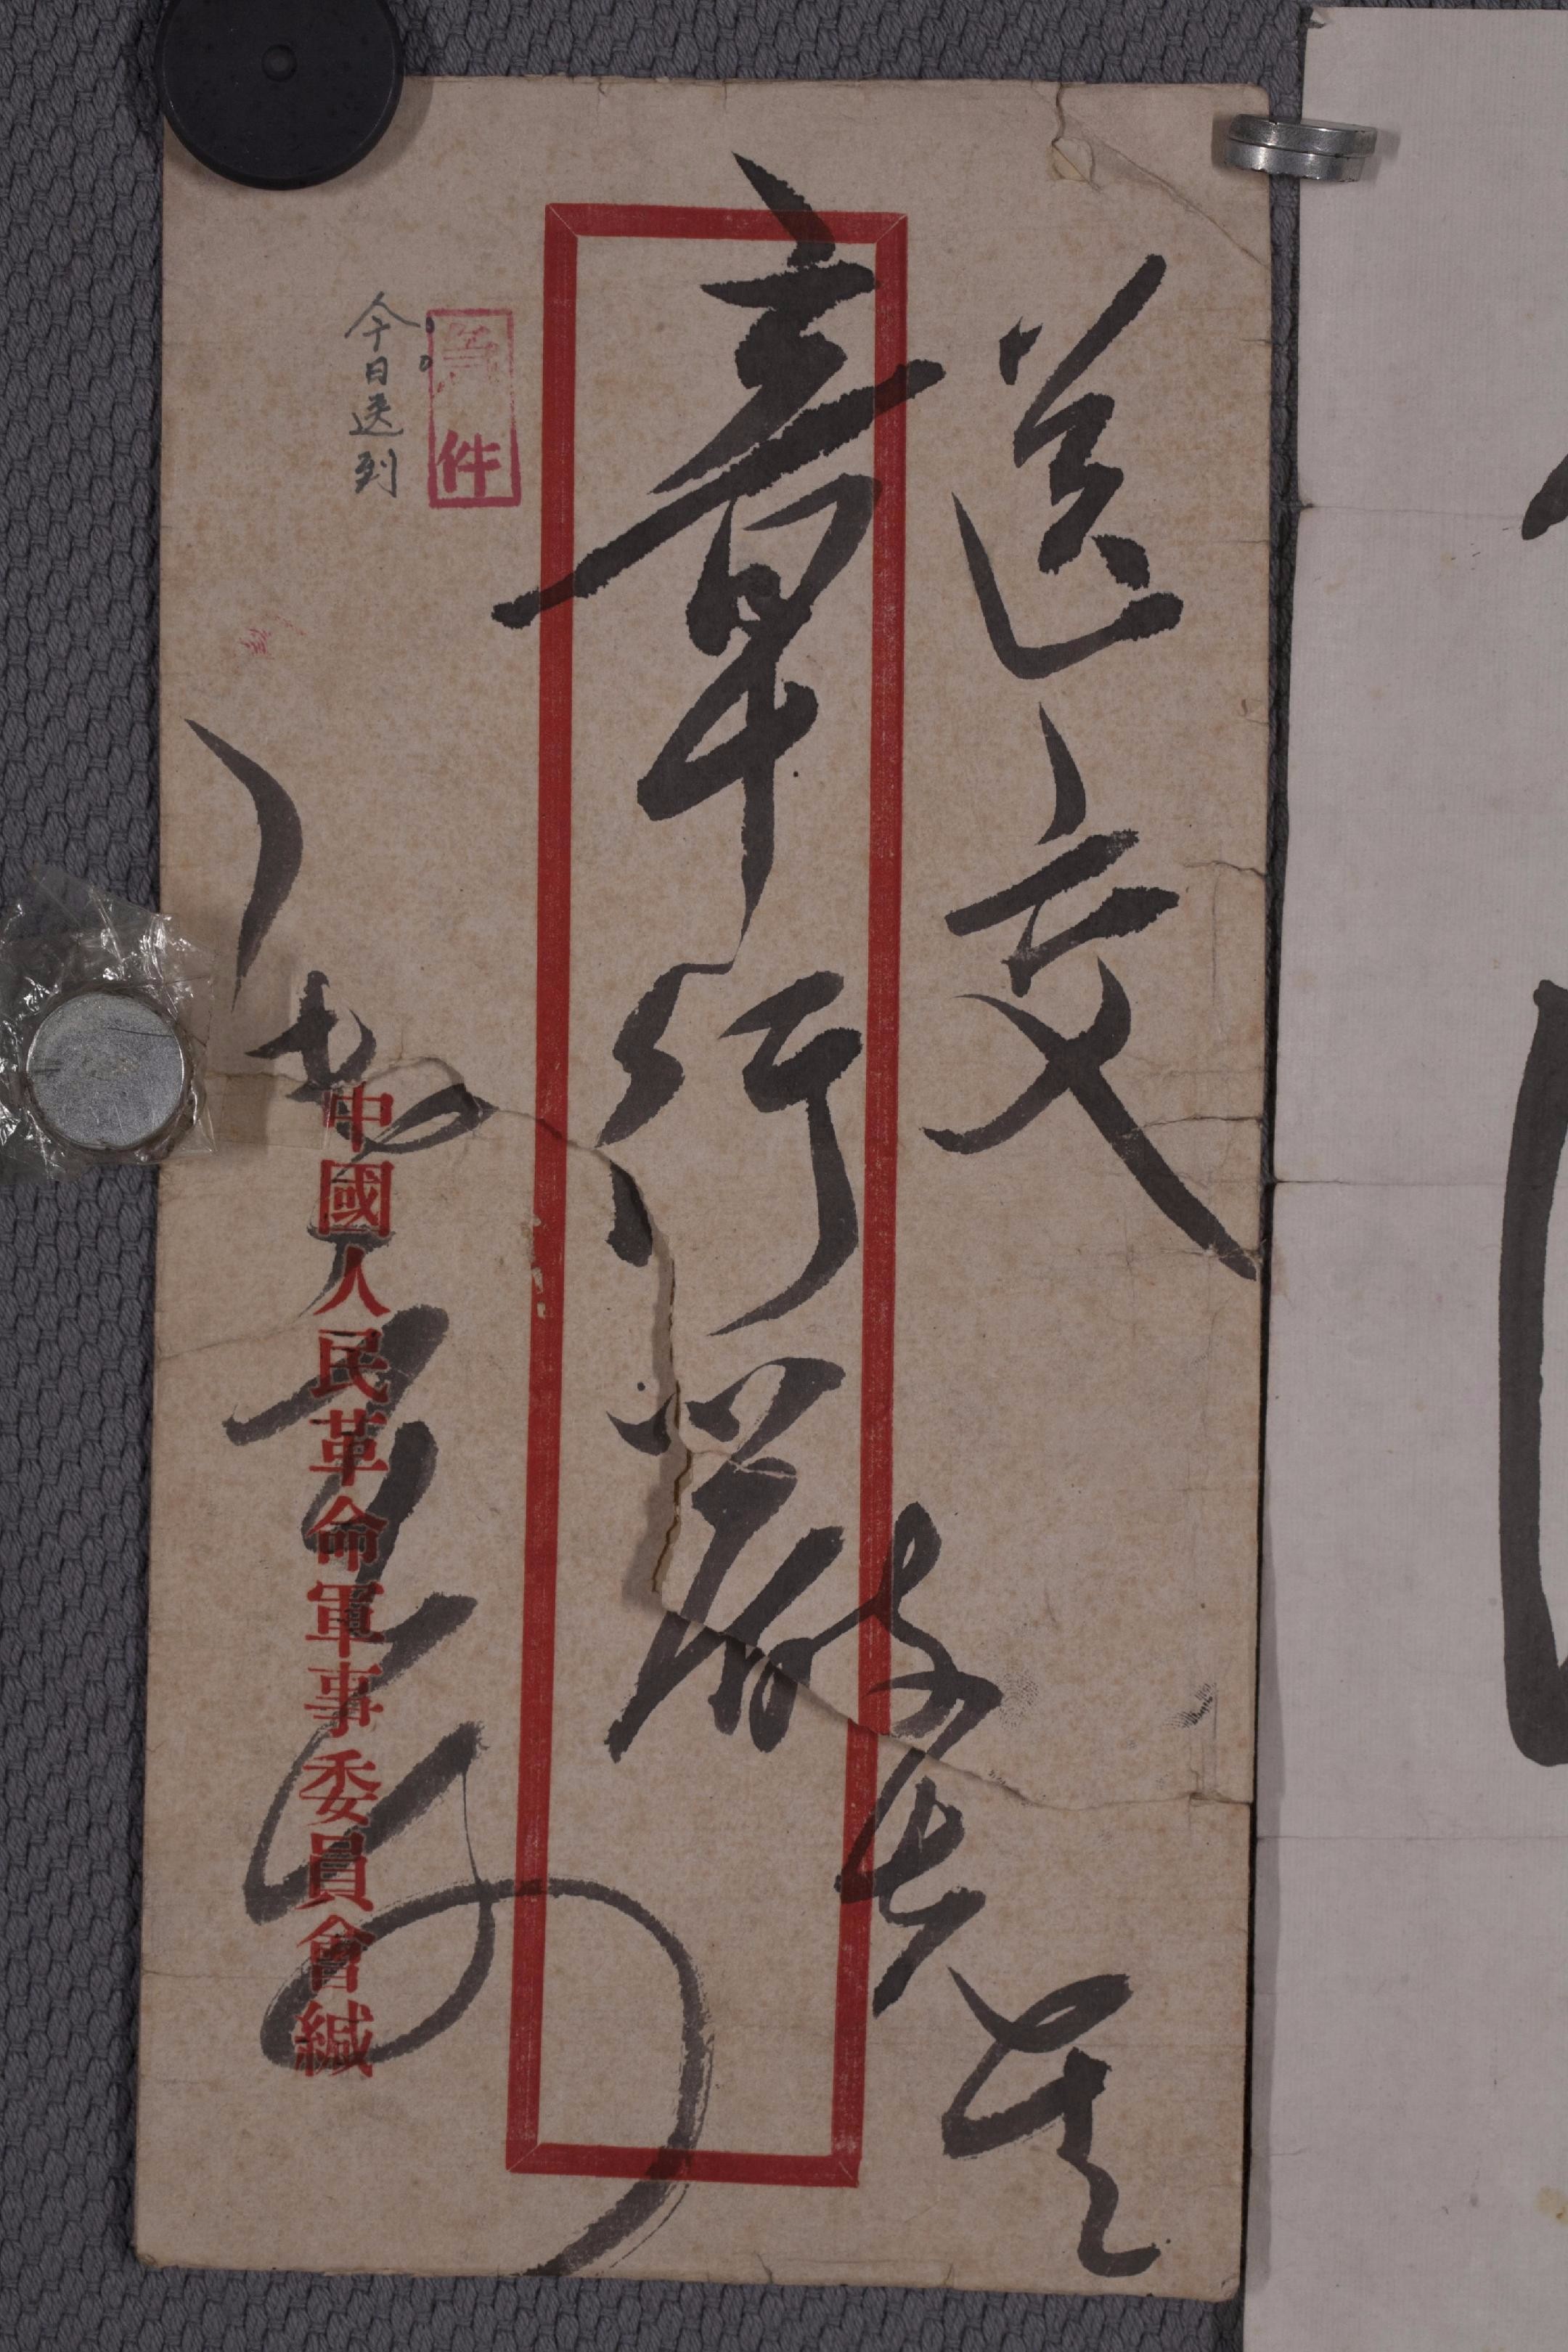 送交
章行嚴先生
急件
今日送到
毛澤東寄
中國人民革命軍事委員會緘